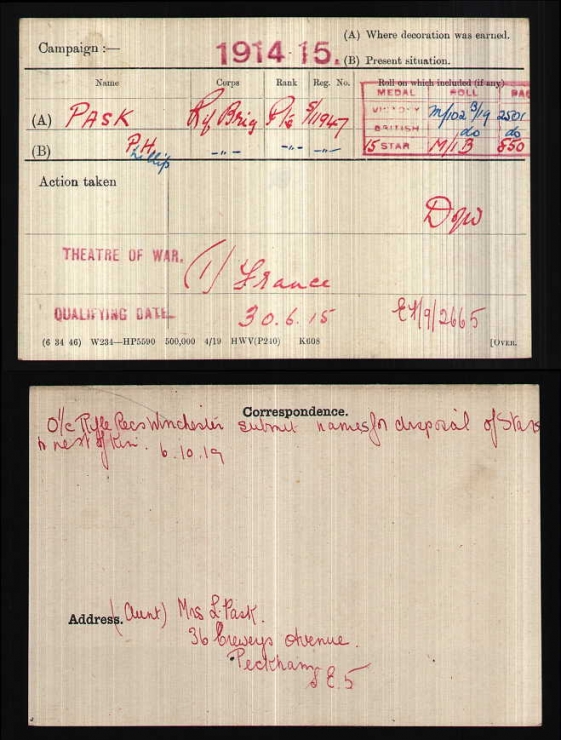 Campaign :— 1914-15.
(A) Where decoration was earned.
(B) Present situation.
Name Corps Rank Reg. No. Roll on which included (if any)
MEDAL ROLL PAG
(A) PASK Rif Brig Pte S/11947
VICTORY M/102 B/19 2501
BRITISH do do
(B) P.H. -"- -"- -"-
Phillip
15 STAR M/1 B 550
Action taken
Dofw
THEATRE OF WAR. (1) France
QUALIFYING DATE. 30.6.15
(6 34 46) W234—HP5590 500,000 4/19 HWV(P240) K608 [OVER.
Correspondence.
O/c Rifle Recs Winchester submit names for disposal of Stars
to next of Kin. 6.10.19
Address. (Aunt) Mrs L. Pask.
36 Avenue.
Peckham
S.E.5